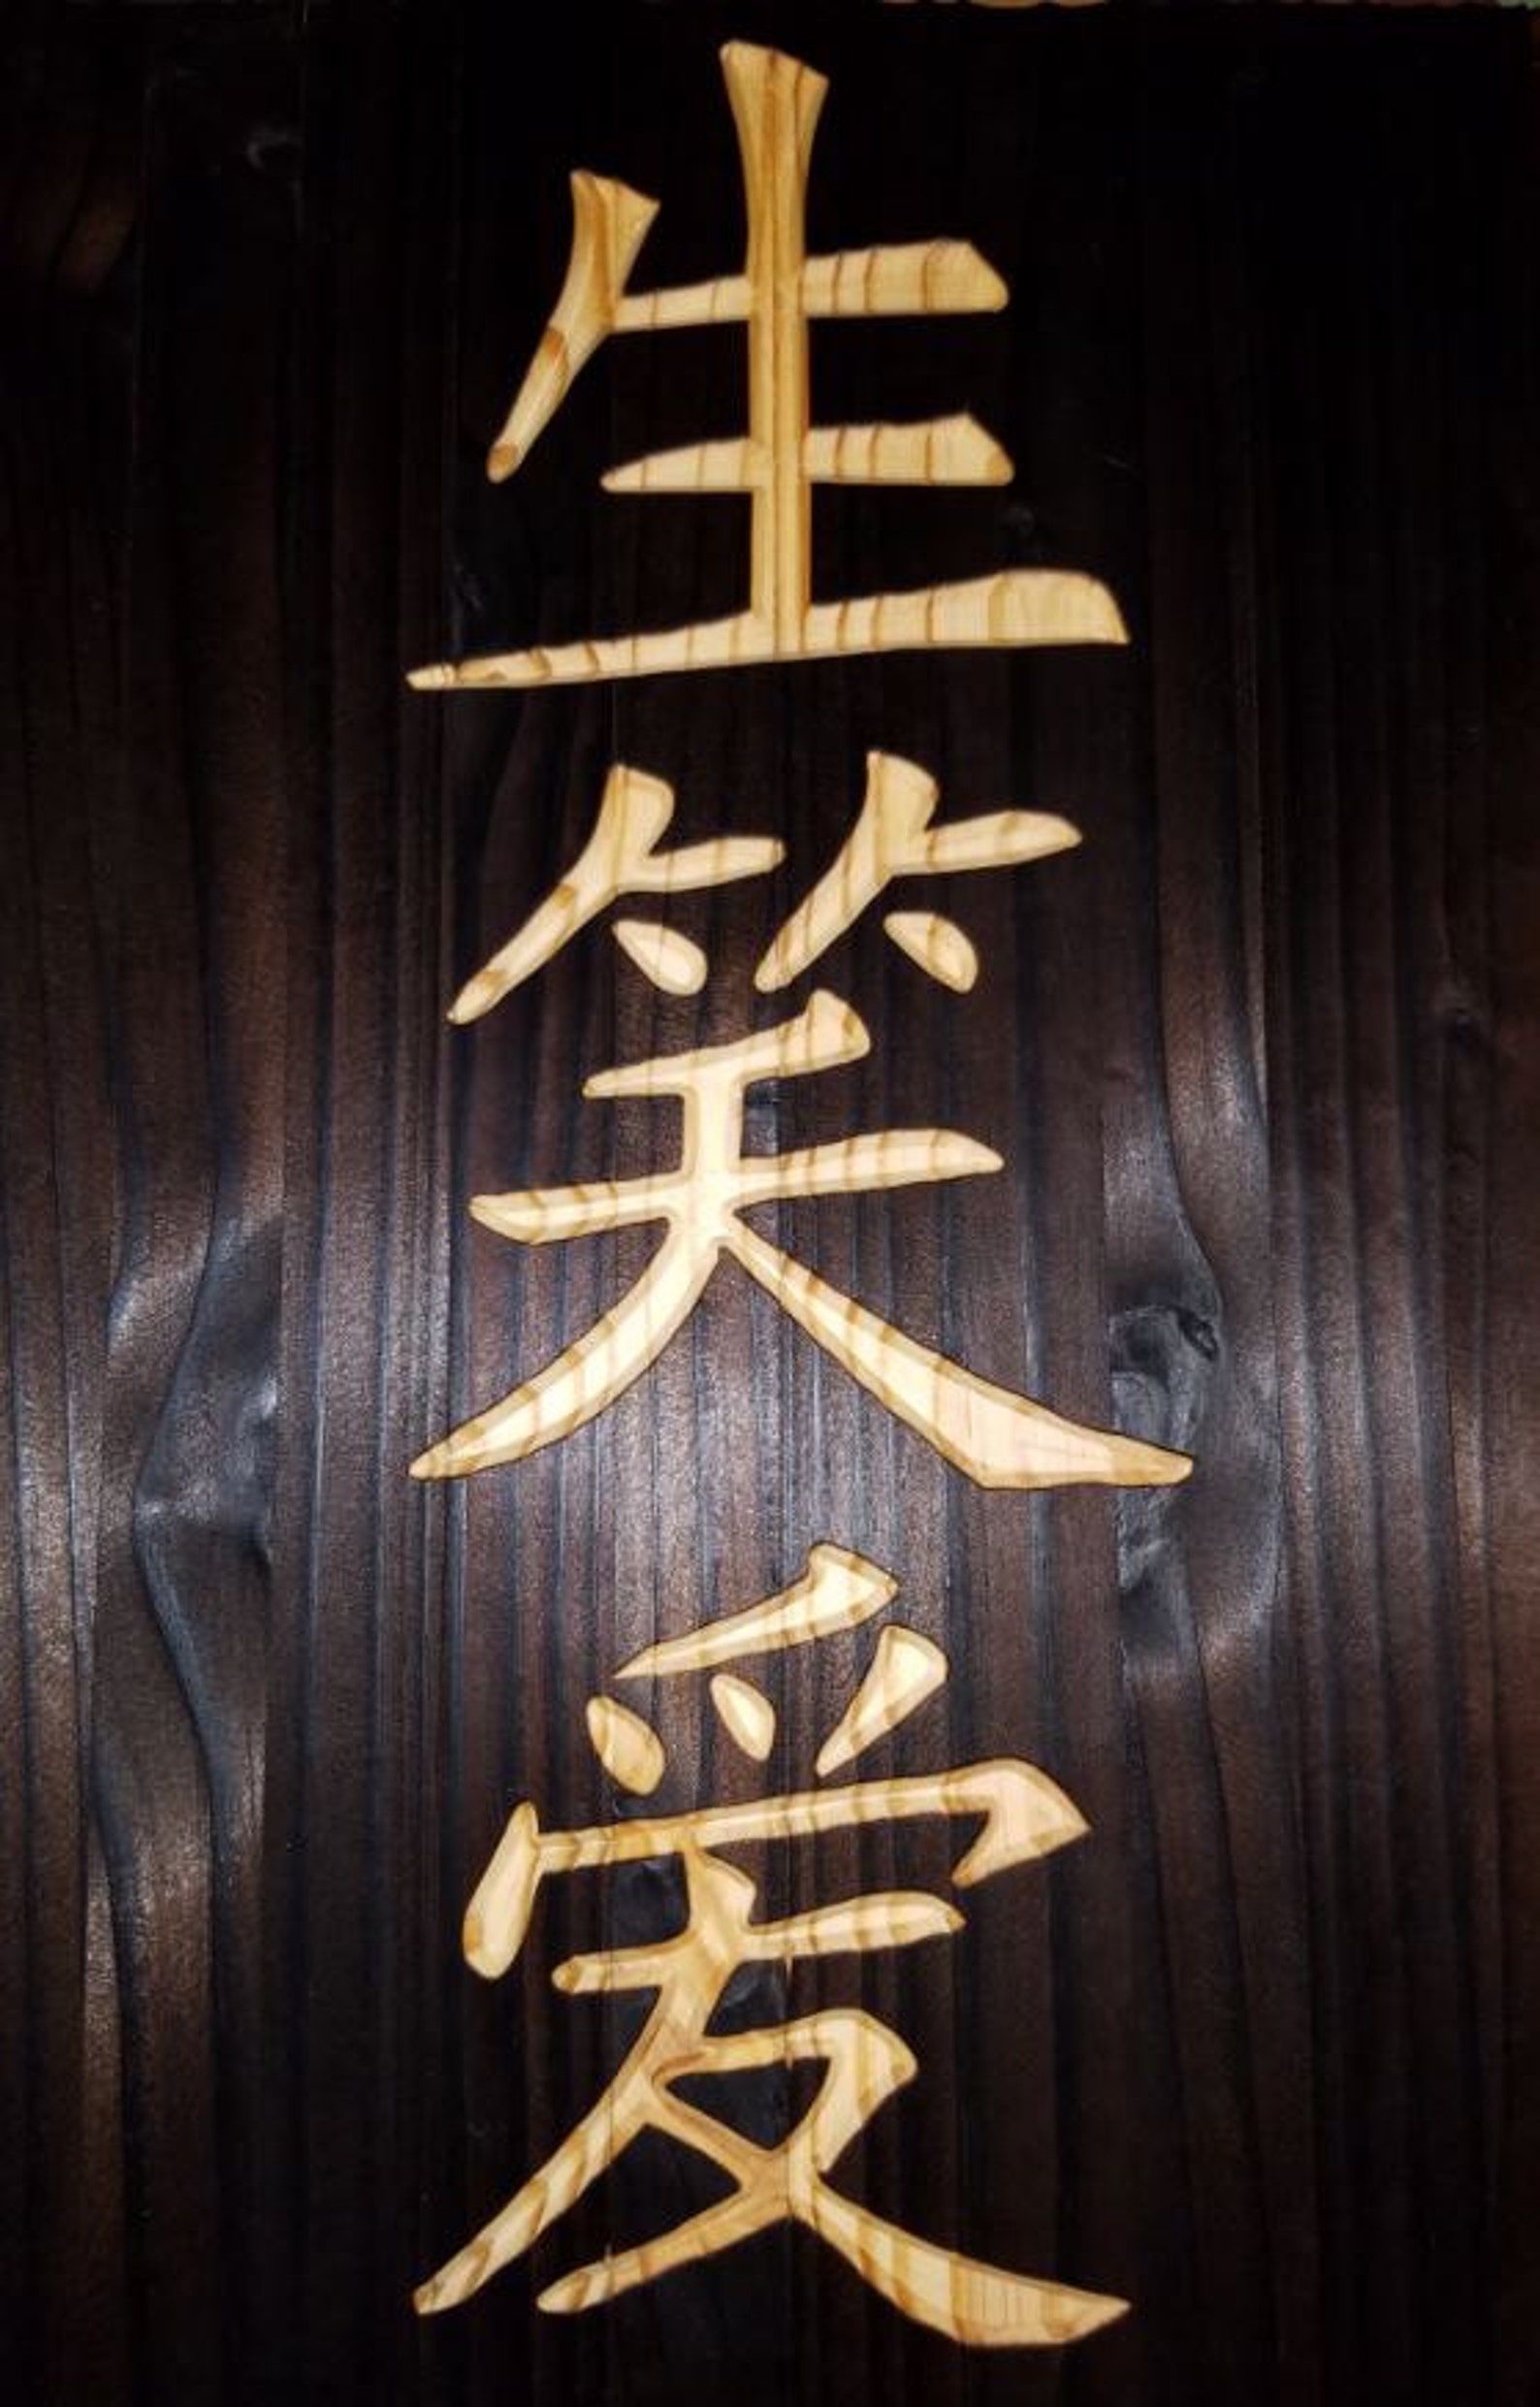 生笑爱